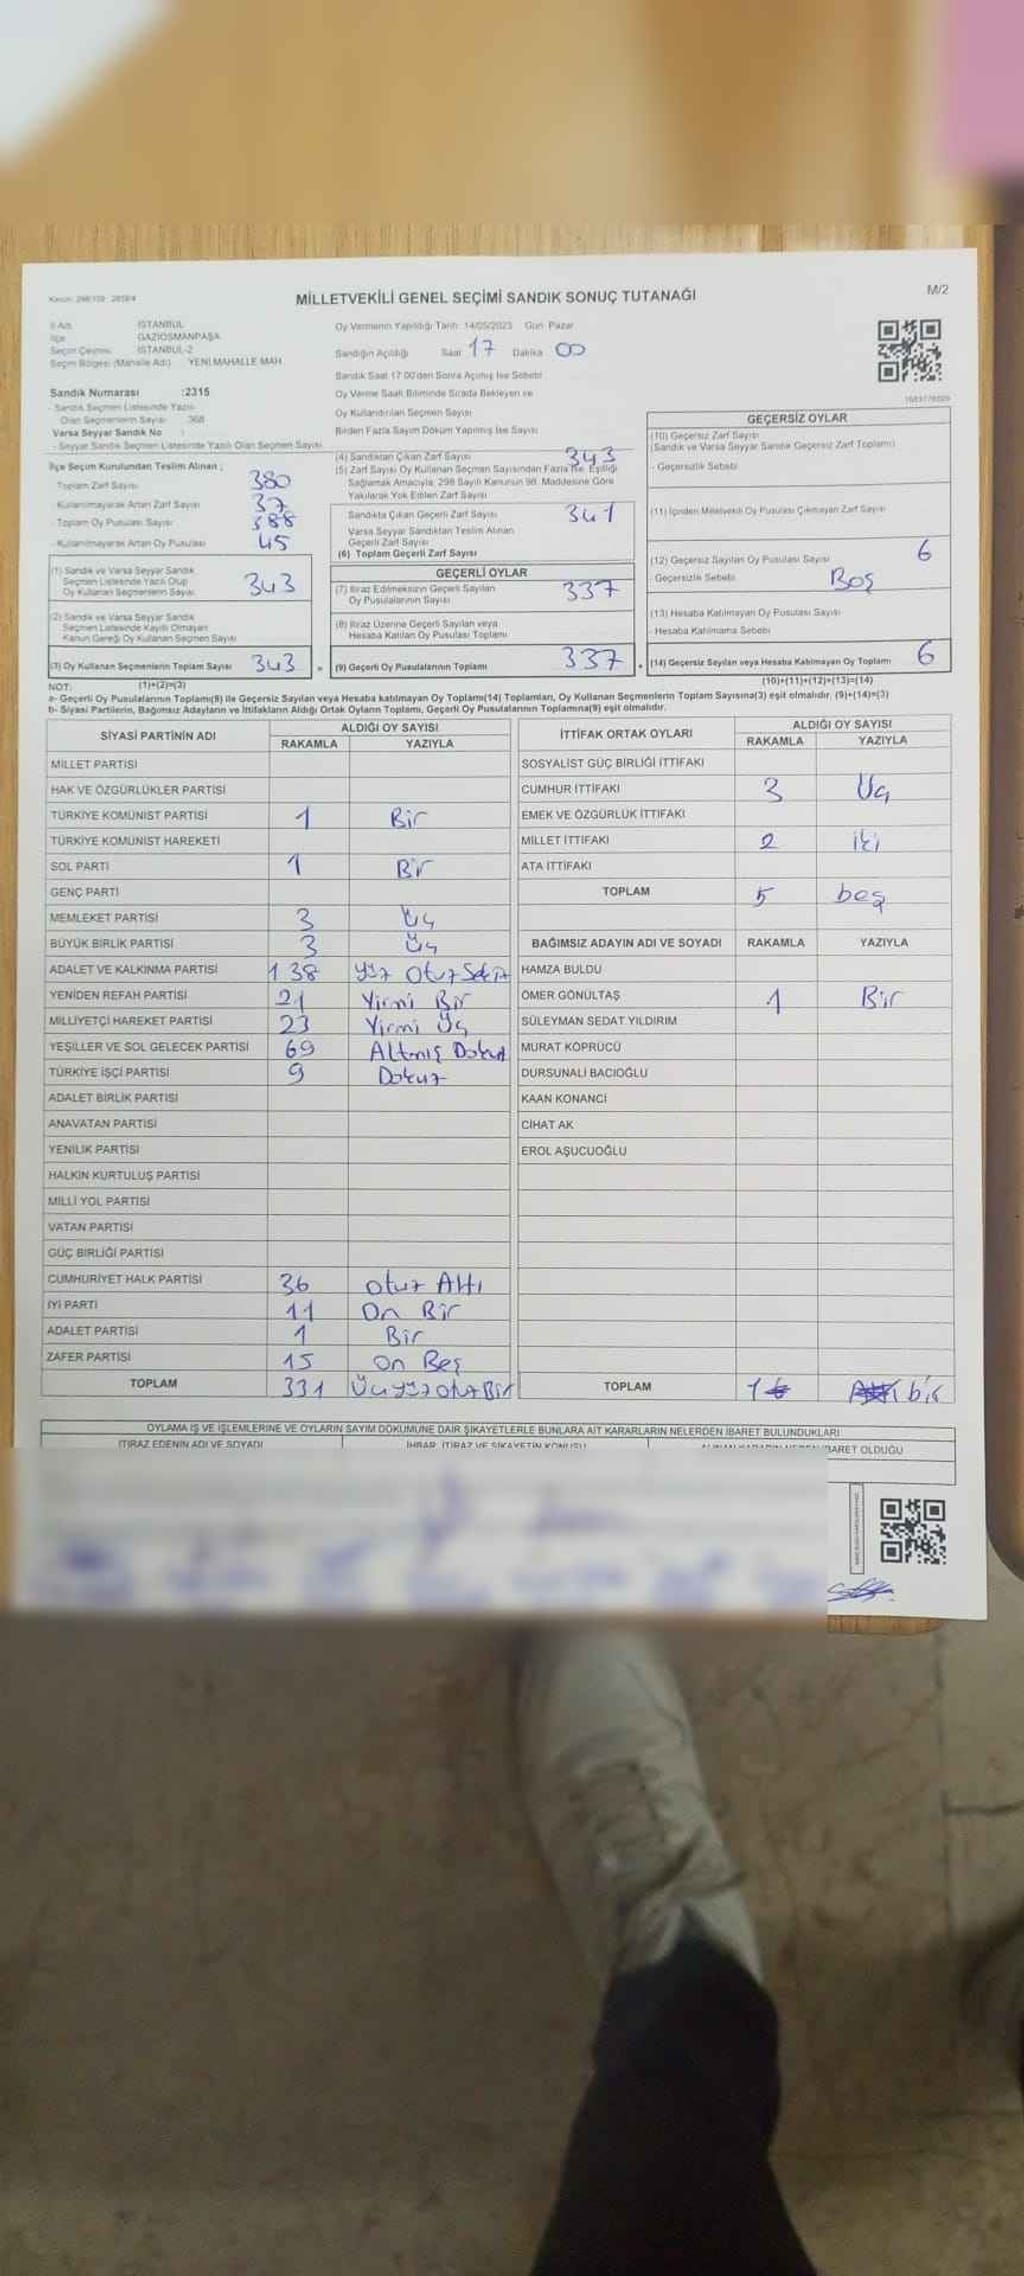 MİLLETVEKİLİ GENEL SEÇİMİ SANDIK SONUÇ TUTANAĞI
M/2
İli Adı İSTANBUL
İlçe GAZİOSMANPAŞA
Seçim Çevresi İSTANBUL-2
Seçim Bölgesi (Mahalle Adı) YENİ MAHALLE MAH.
Sandık Numarası :2315
- Sandık Seçmen Listesinde Yazılı
Olan Seçmenlerin Sayısı 368
Varsa Seyyar Sandık No :
- Seyyar Sandık Seçmen Listesinde Yazılı Olan Seçmen Sayısı
Oy Vermenin Yapıldığı Tarih: 14/05/2023 Gün: Pazar
Sandığın Açıldığı Saat 17 Dakika 00
Sandık Saat 17:00'den Sonra Açılmış İse Sebebi
Oy Verme Saati Bitiminde Sırada Bekleyen ve
Oy Kullandırılan Seçmen Sayısı
Birden Fazla Sayım Döküm Yapılmış İse Sayısı
İlçe Seçim Kurulundan Teslim Alınan ;
Toplam Zarf Sayısı 380
- Kullanılmayarak Artan Zarf Sayısı 37
- Toplam Oy Pusulası Sayısı 388
- Kullanılmayarak Artan Oy Pusulası 45
(1) Sandık ve Varsa Seyyar Sandık
Seçmen Listesinde Yazılı Olup
Oy Kullanan Seçmenlerin Sayısı 343
(2) Sandık ve Varsa Seyyar Sandık
Seçmen Listesinde Kayıtlı Olmayan
Kanun Gereği Oy Kullanan Seçmen Sayısı
(3) Oy Kullanan Seçmenlerin Toplam Sayısı 343
(1)+(2)=(3)
(4) Sandıktan Çıkan Zarf Sayısı 343
(5) Zarf Sayısı Oy Kullanan Seçmen Sayısından Fazla İse, Eşitliği
Sağlamak Amacıyla, 298 Sayılı Kanunun 98. Maddesine Göre
Yakılarak Yok Edilen Zarf Sayısı
Sandıkta Çıkan Geçerli Zarf Sayısı 341
Varsa Seyyar Sandıktan Teslim Alınan
Geçerli Zarf Sayısı
(6) Toplam Geçerli Zarf Sayısı
GEÇERLİ OYLAR
(7) İtiraz Edilmeksizin Geçerli Sayılan
Oy Pusulalarının Sayısı 337
(8) İtiraz Üzerine Geçerli Sayılan veya
Hesaba Katılan Oy Pusulası Toplamı
(9) Geçerli Oy Pusulalarının Toplamı 337
GEÇERSİZ OYLAR
(10) Geçersiz Zarf Sayısı
(Sandık ve Varsa Seyyar Sandık Geçersiz Zarf Toplamı)
- Geçersizlik Sebebi
(11) İçinden Milletvekili Oy Pusulası Çıkmayan Zarf Sayısı
(12) Geçersiz Sayılan Oy Pusulası Sayısı 6
Geçersizlik Sebebi Boş
(13) Hesaba Katılmayan Oy Pusulası Sayısı
- Hesaba Katılmama Sebebi
(14) Geçersiz Sayılan veya Hesaba Katılmayan Oy Toplamı 6
(10)+(11)+(12)+(13)=(14)
NOT:
a- Geçerli Oy Pusulalarının Toplamı(9) ile Geçersiz Sayılan veya Hesaba katılmayan Oy Toplamı(14) Toplamları, Oy Kullanan Seçmenlerin Toplam Sayısına(3) eşit olmalıdır. (9)+(14)=(3)
b- Siyasi Partilerin, Bağımsız Adayların ve İttifakların Aldığı Ortak Oyların Toplamı, Geçerli Oy Pusulalarının Toplamına(9) eşit olmalıdır.
SİYASİ PARTİNİN ADI ALDIĞI OY SAYISI
RAKAMLA YAZIYLA
MİLLET PARTİSİ
HAK VE ÖZGÜRLÜKLER PARTİSİ
TÜRKİYE KOMÜNİST PARTİSİ 1 Bir
TÜRKİYE KOMÜNİST HAREKETİ
SOL PARTİ 1 Bir
GENÇ PARTİ
MEMLEKET PARTİSİ 3 Üç
BÜYÜK BİRLİK PARTİSİ 3 Üç
ADALET VE KALKINMA PARTİSİ 138 Yüz Otuz Sekiz
YENİDEN REFAH PARTİSİ 21 Yirmi Bir
MİLLİYETÇİ HAREKET PARTİSİ 23 Yirmi Üç
YEŞİLLER VE SOL GELECEK PARTİSİ 69 Altmış Dokuz
TÜRKİYE İŞÇİ PARTİSİ 9 Dokuz
ADALET BİRLİK PARTİSİ
ANAVATAN PARTİSİ
YENİLİK PARTİSİ
HALKIN KURTULUŞ PARTİSİ
MİLLİ YOL PARTİSİ
VATAN PARTİSİ
GÜÇ BİRLİĞİ PARTİSİ
CUMHURİYET HALK PARTİSİ 36 Otuz Altı
İYİ PARTİ 11 On Bir
ADALET PARTİSİ 1 Bir
ZAFER PARTİSİ 15 On Beş
TOPLAM 331 Üçyüzotuz Bir
İTTİFAK ORTAK OYLARI ALDIĞI OY SAYISI
RAKAMLA YAZIYLA
SOSYALİST GÜÇ BİRLİĞİ İTTİFAKI
CUMHUR İTTİFAKI 3 Üç
EMEK VE ÖZGÜRLÜK İTTİFAKI
MİLLET İTTİFAKI 2 iki
ATA İTTİFAKI
TOPLAM 5 beş
BAĞIMSIZ ADAYIN ADI VE SOYADI RAKAMLA YAZIYLA
HAMZA BULDU
ÖMER GÖNÜLTAŞ 1 Bir
SÜLEYMAN SEDAT YILDIRIM
MURAT KÖPRÜCÜ
DURSUNALİ BACIOĞLU
KAAN KONANCİ
CİHAT AK
EROL AŞUCUOĞLU
TOPLAM 1 bir
OYLAMA İŞ VE İŞLEMLERİNE VE OYLARIN SAYIM DÖKÜMÜNE DAİR ŞİKAYETLERLE BUNLARA AİT KARARLARIN NELERDEN İBARET BULUNDUKLARI
İTİRAZ EDENİN ADI VE SOYADI İHBAR, İTİRAZ VE ŞİKAYETİN KONUSU İBARET OLDUĞU